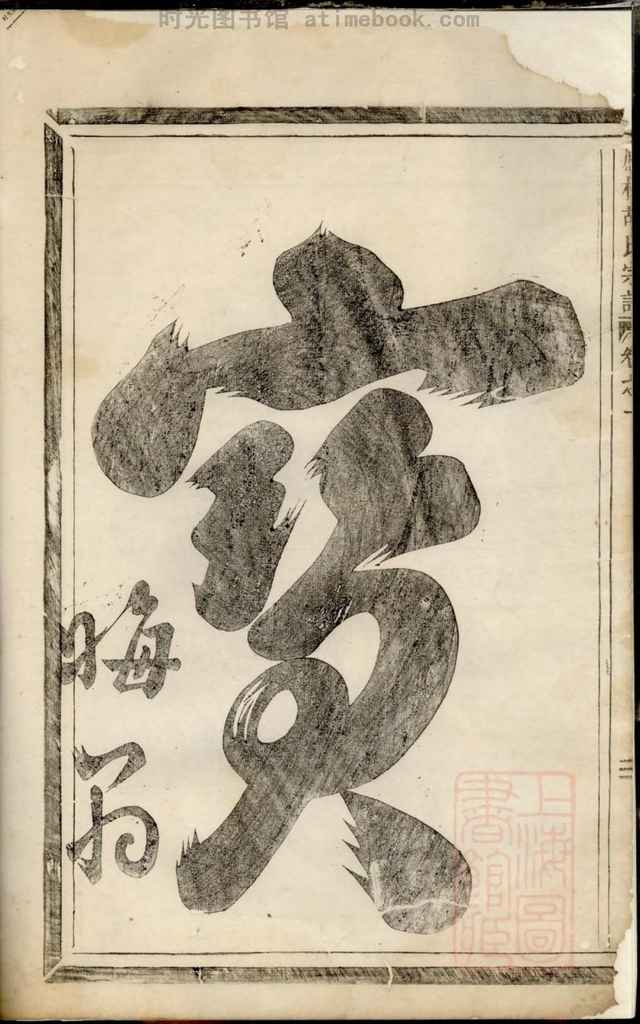 时光图书馆 atimebook.com
寶
晦翁
上海圖書館藏